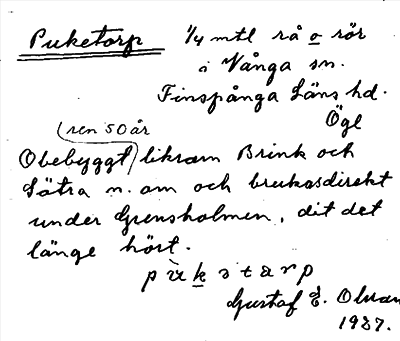 Puketorp ¼ mtl rå o rör
i Vånga sn.
Finspånga Läns hd.
Ögl
(sen 50 år
Obebyggt) liksom Brink och
Sätra n. om och brukas direkt
under Grensholmen, dit det
länge hört.
pùkstarp
Gustaf E. Olsson
1927.